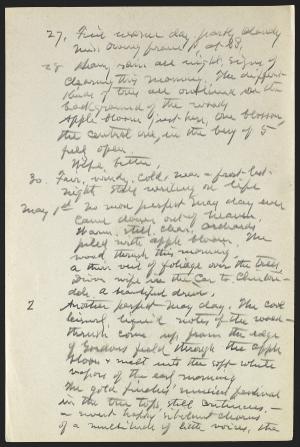 27, Fine warm day, partly cloudy
Miss Young came, at 83,
28 Sharp rain all night, signs of
clearing this morning. The different
kinds of trees all outlined on the
background of the woods
Apple bloom just here, one blossom,
the central one, in the bery of 5
full open.
Wife better,
30 Fair, windy, cold, near a frost last
night. Still working on life
May 1st No more perfect May day ever
came down out of heaven.
Warm, still, clear, orchards
piled with apple bloom. The
wood thrush this morning.
a thin veil of foliage over the trees,
Drive wife in the Car to
a beautiful drive.
2 Another perfect May day. The
leisurely, liquid notes of the wood-
thrush come up from the edge
of Gordons field through the apple
bloom & melt into the soft white
vapors of the early morning
The gold finches' musical festival
in the tree tops still continues, —
a most happy chorus
of a multitude of little voices, the